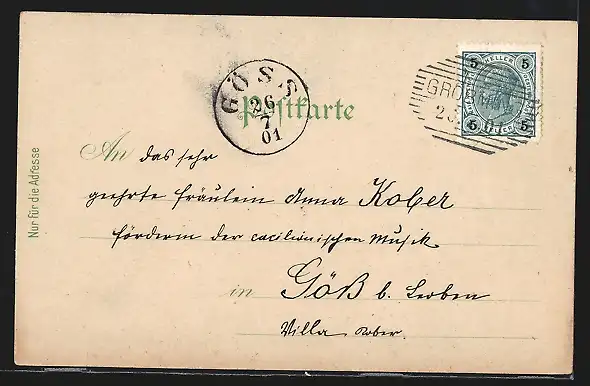 GÖSS
26
7
01
Postkarte
5 HELLER 5
GRO
5 5
Nur für die Adresse
An das sehr
geehrte Fräulein Anna Kober
Förderin der cacilianischen Musik
in Göß b. Leoben
Villa Kober.